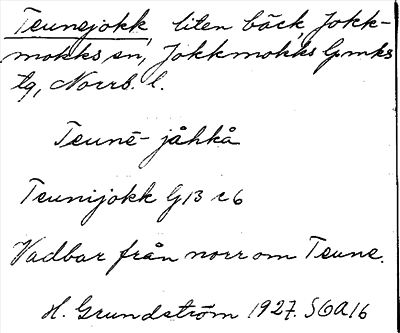 Teunejokk, liten bäck, Jokk-
mokks sn, Jokkmokks lpmks
tg, Norrb. l.
Teunē-jåhkå
Teunijokk GB r6
Vadbar från norr om Teune.
H. Grundström 1927. S6A16